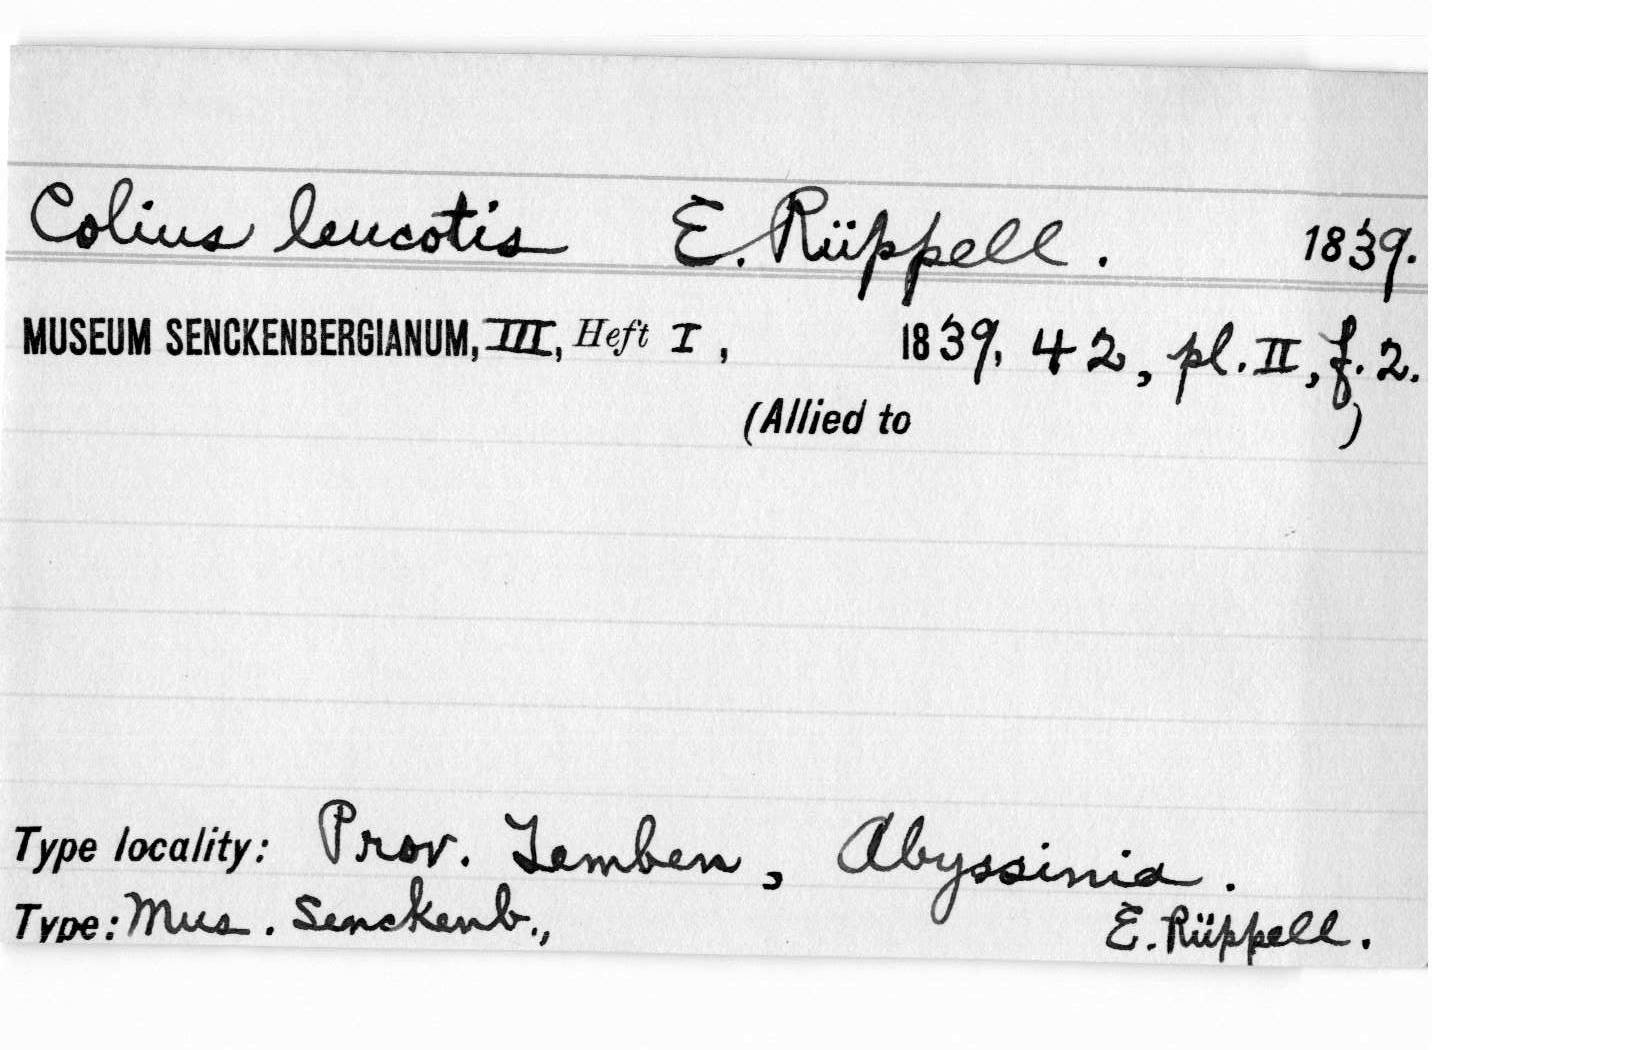 Colius leucotis E. Rüppell. 1839.
MUSEUM SENCKENBERGIANUM, III, Heft I, 1839, 42, pl. II, f. 2.
(Allied to )
Type locality: Prov. Temben, Abyssinia.
Type: Mus. Senckenb., E. Rüppell.